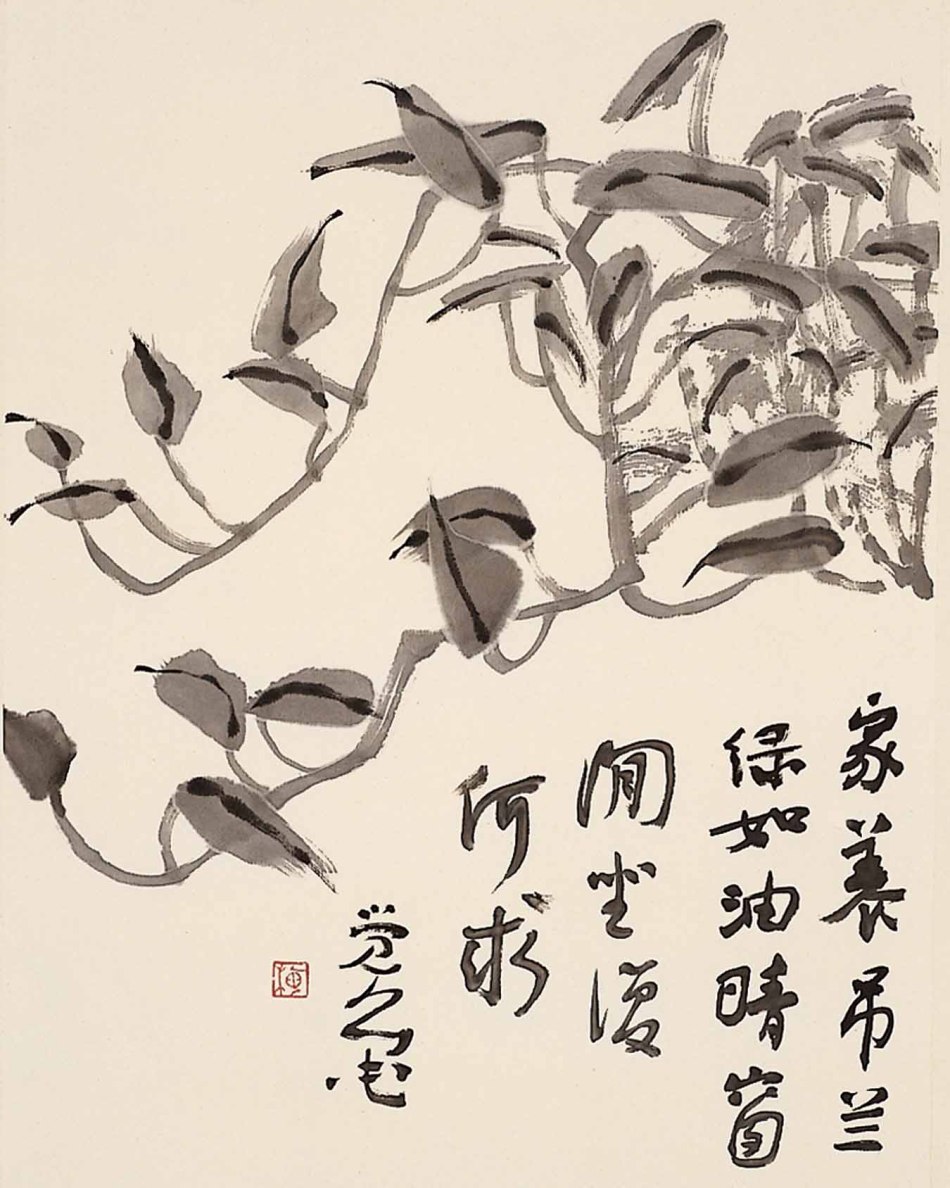 家养吊兰
绿如油晴窗
闲坐复
何求
觉之墨